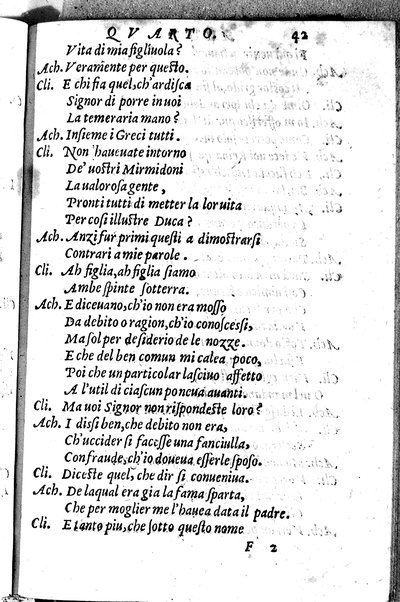 QVARTO. 42
Vita di mia figliuola?
Ach. Veramente per questo.
Cli. E chi fia quel, ch'ardisca
Signor di porre in uoi
La temeraria mano?
Ach. Insieme i Greci tutti.
Cli. Non'haueuate intorno
De' uostri Mirmidoni
La ualorosa gente,
Pronti tutti di metter la lor uita
Per cosi illustre Duca?
Ach. Anzi fur primi questi a dimostrarsi
Contrari a mie parole.
Cli. Ah figlia, ah figlia siamo
Ambe spinte sotterra.
Ach. E diceuano, ch'io non era mosso
Da debito o ragion, ch'io conoscessi,
Ma sol per desiderio de le nozze.
E che del ben comun mi calea poco,
Poi che un particolar lasciuo affetto
A l'util di ciascun poneua auanti.
Cli. Ma uoi Signor non rispondeste loro?
Ach. I dissi ben, che debito non era,
Ch'uccider si facesse una fanciulla,
Con fraude, ch'io doueua esserle sposo.
Cli. Diceste quel, che dir si conueniua.
Ach. De la qual era gia la fama sparta,
Che per moglier me l'hauea data il padre.
Cli. E tanto piu, che sotto questo nome
F 2